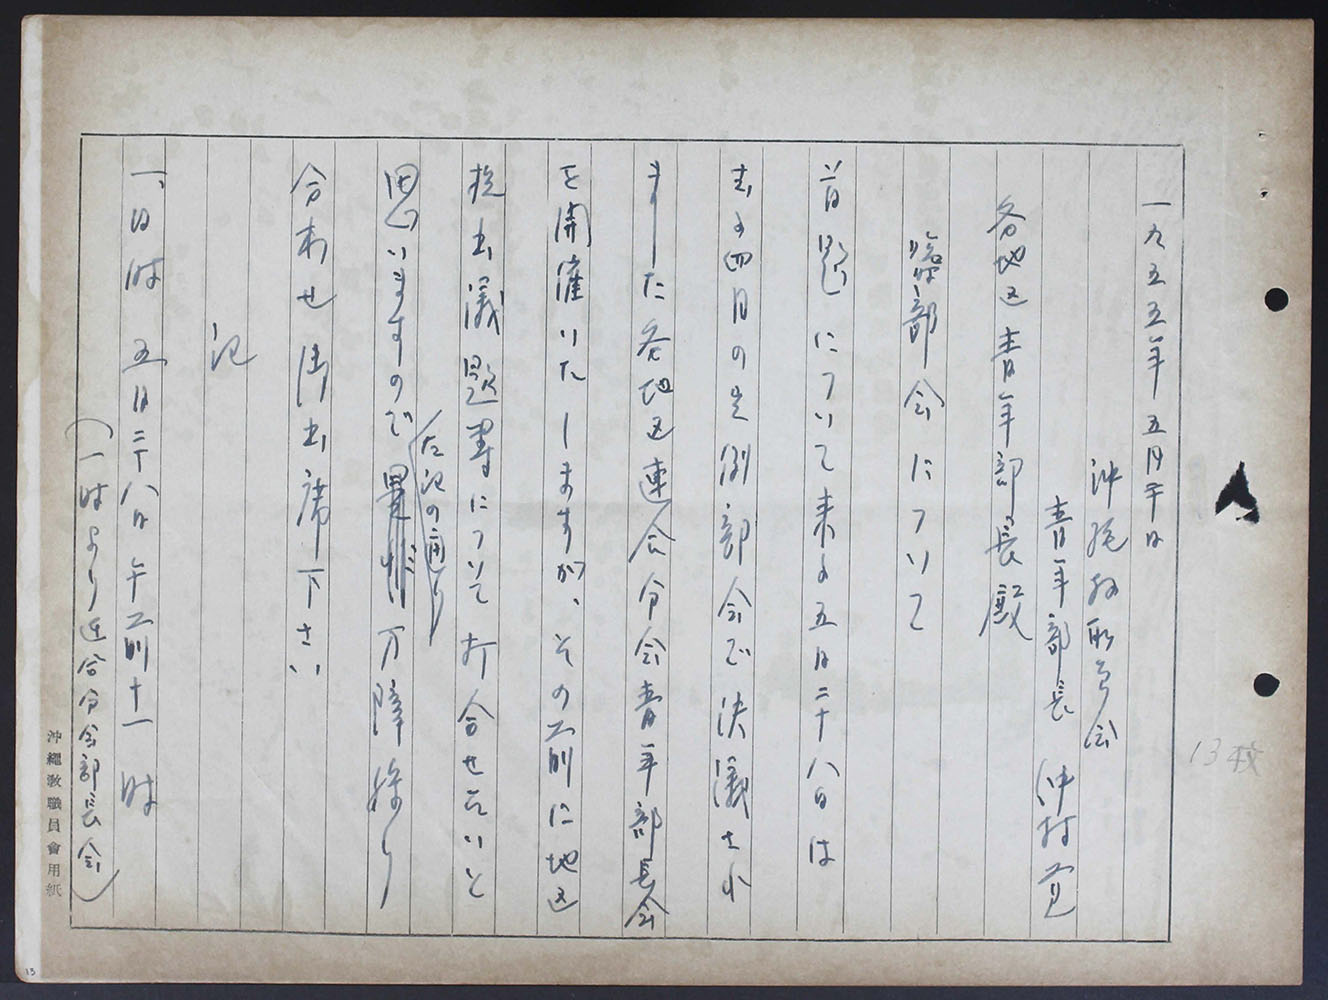 一九五五年五月二十日
沖縄教職員会
青年部長 仲村
各地区青年部長殿
臨時部会について
首題について来る五月二十八日は
去る四月の定例部会で決議され
ました各地区連合分会青年部長会
を開催いたしますが、その前に地区
提出議題等について打合せたいと
思いますので 万障繰り
左記の通り
合わせ御出席下さい
記
一、日時 五月二十八日午前十一時
(一時より連合分会部長会)
沖繩教職員會用紙
13枚
13